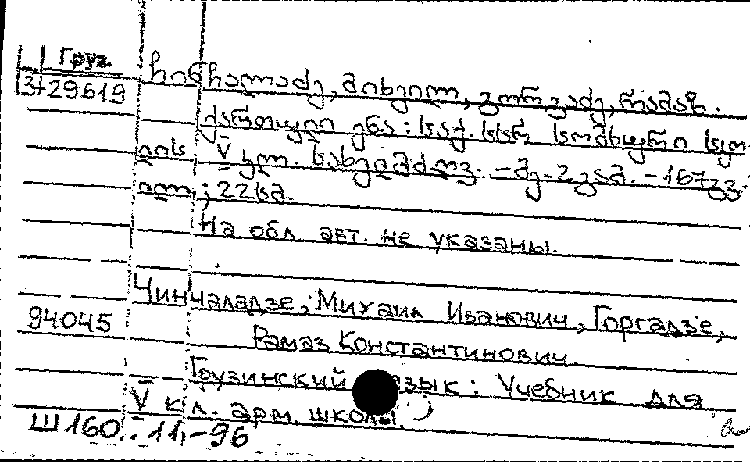 Груз.
3-29619
ჩინჩალაძე, მიხეილ, გორგაძე, რამაზ.
ქართული ენა: სახ. სომხური სკო-
ლის V კლ. სახელმძღვ. – მე-2 გამ. – 167 გვ.
ილ; 22 სმ.
На обл. авт. не указаны.
Чинчаладзе, Михаил Иванович, Горгадзе,
94045
Рамаз Константинович.
Грузинский язык: Учебник для
V кл. арм. школы
Ш160.-11,-96